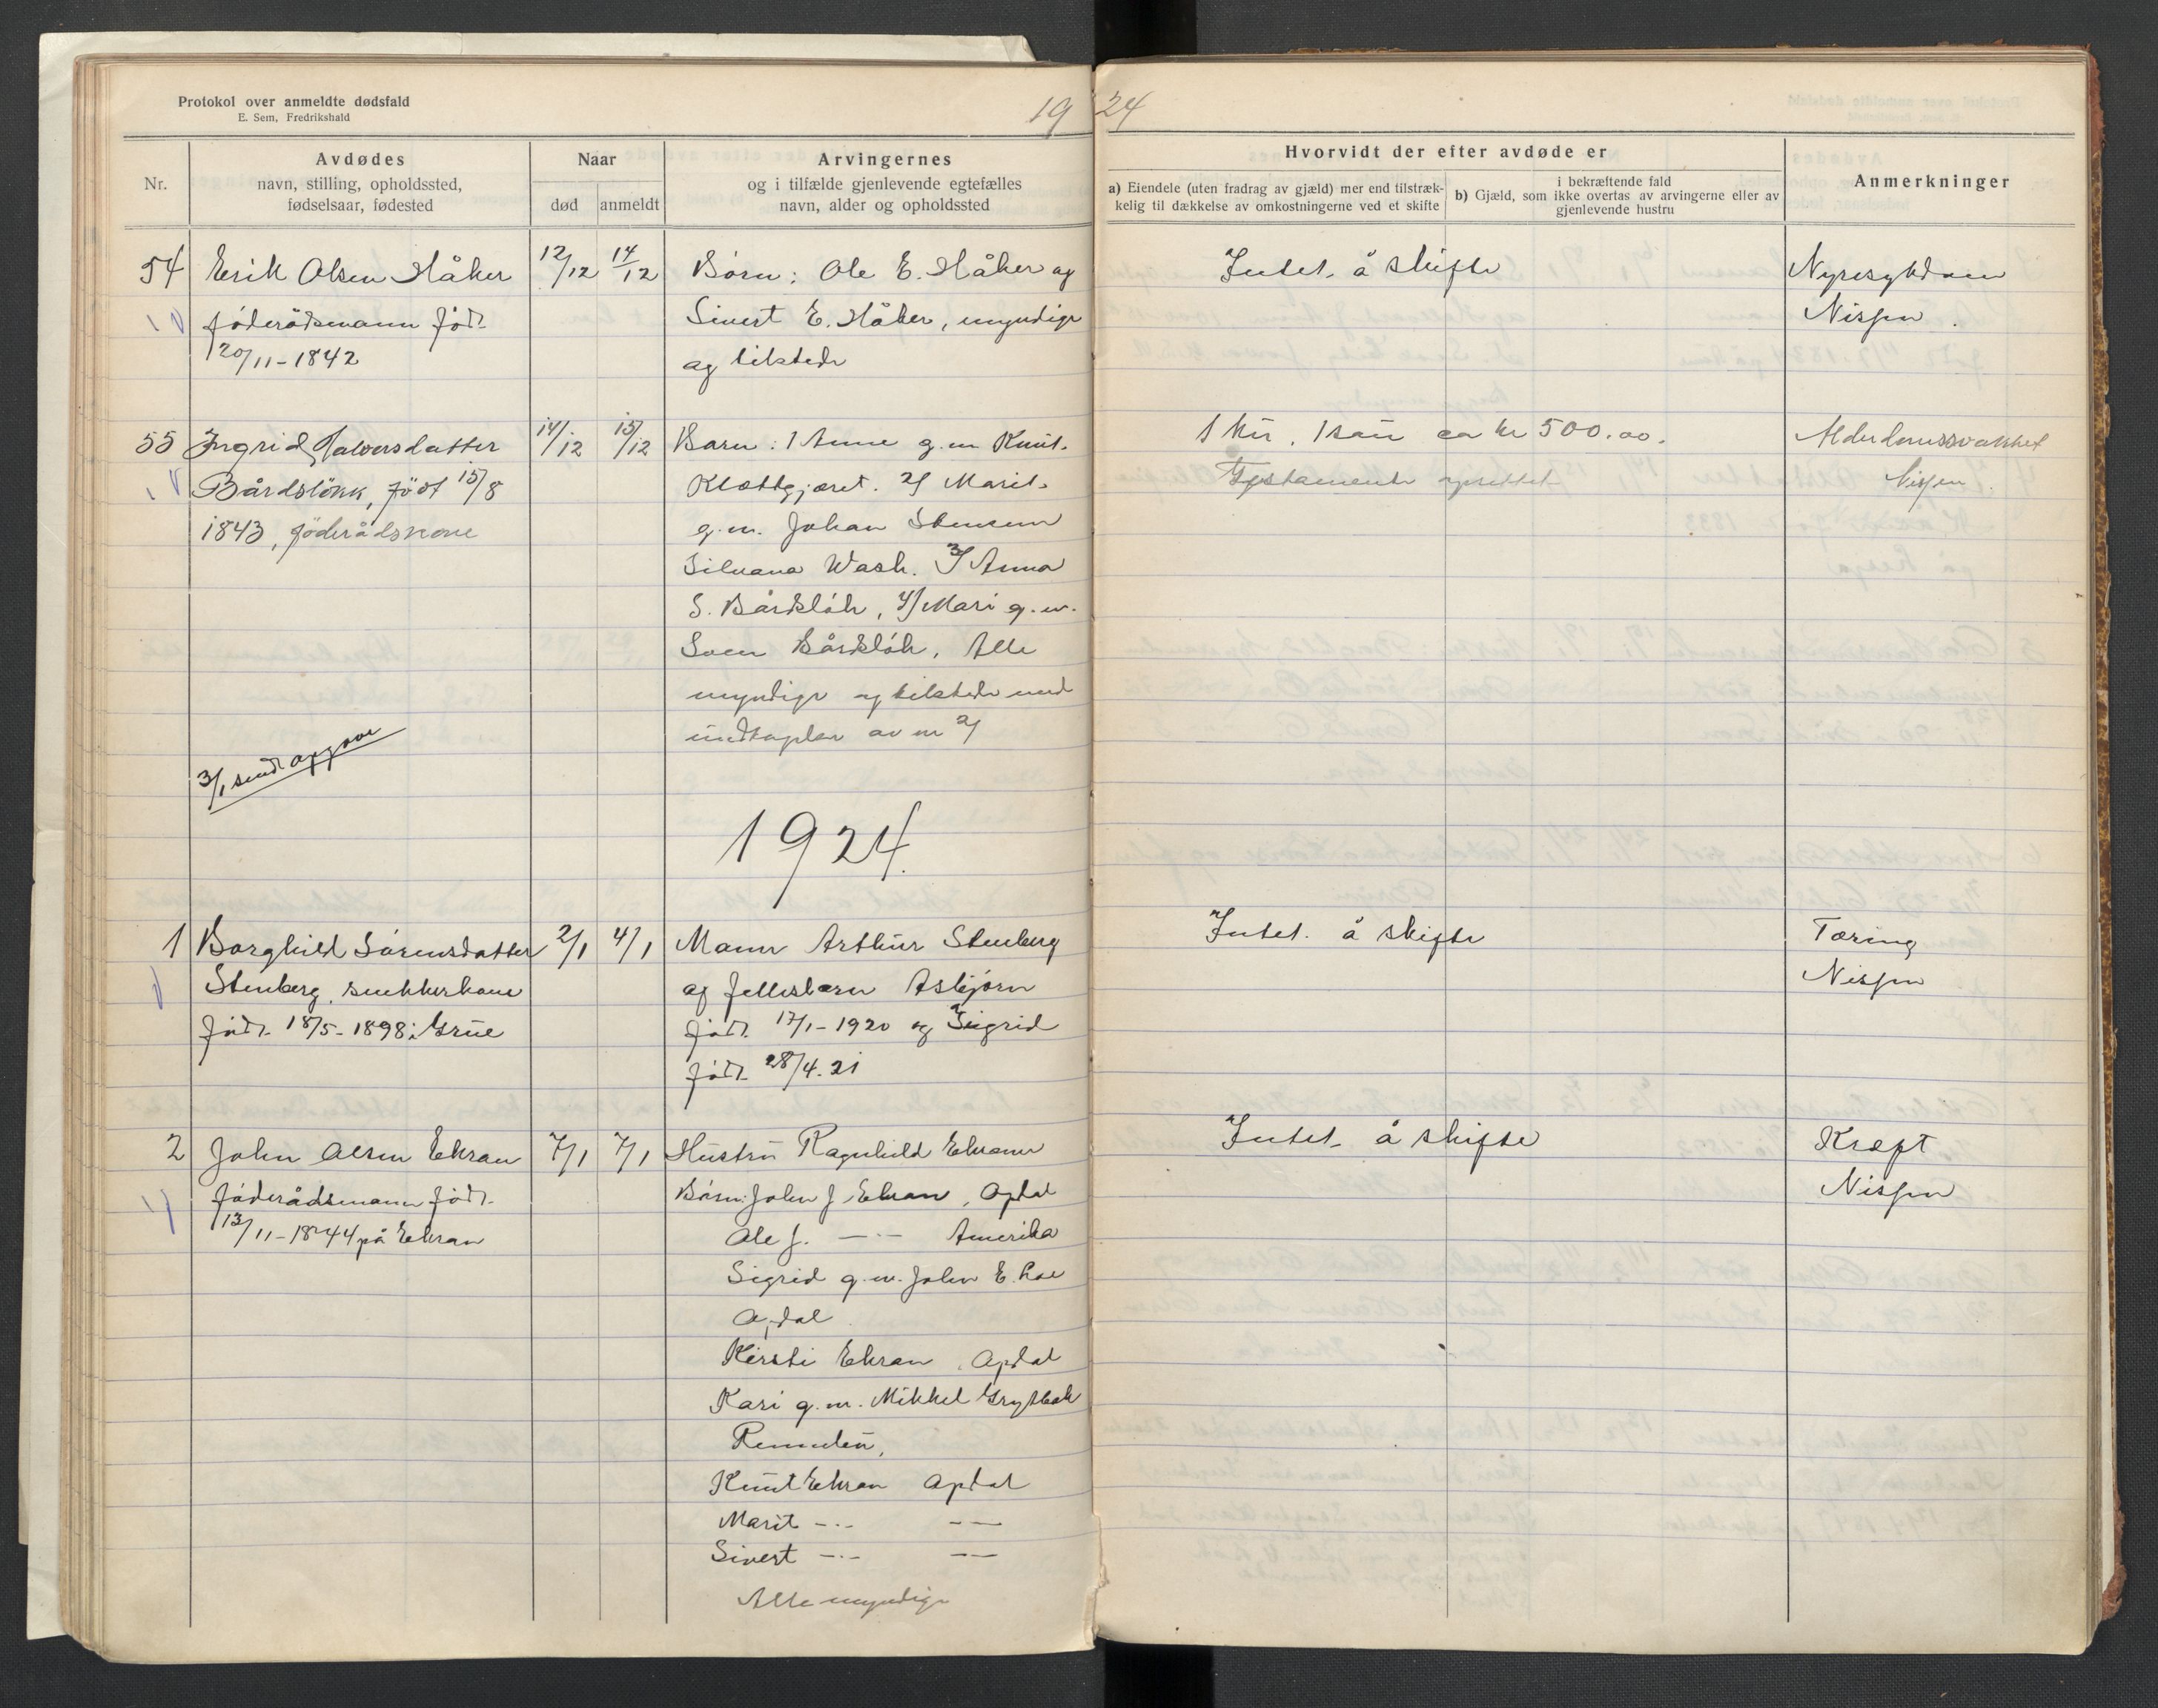 Protokol over anmeldte dødsfald
E. Sem, Fredrikshald
19 24
Nr.
Avdødes
navn, stilling, opholdssted,
fødselsaar, fødested
Naar
død
anmeldt
Arvingernes
og i tilfælde gjenlevende egtefælles
navn, alder og opholdssted
Hvorvidt der efter avdøde er
a) Eiendele (uten fradrag av gjæld) mer end tilstræk-
kelig til dækkelse av omkostningerne ved et skifte
i bekræftende fald
b) Gjæld, som ikke overtas av arvingerne eller av
gjenlevende hustru
Anmerkninger
54
Erik Olsen Håker
föderådsmann född
20/11-1842
12/12
14/12
Börn: Ole E. Håker og
Sivert E. Håker, myndige
og tilstede
Intet å skifte
Nyresykdom
Nissen
55
Ingrid Halvorsdatter
Bårdslökk, född 15/8
1843, föderådskone
14/12
15/12
Barn: 1 Anne g.m Knut
Klettgjæret. 2/ Marit
g.m. Johan Stensen
Silvana Wash. 3/ Anna
S. Bårdslök, 4/ Mari g.m.
Sven Bårdslök, Alle
myndige og tilstede med
undtagelse av nr 2/
1 kur, 1 sau ca kr 500.00.
Testamente oprettet
Alderdomssvakhet
Nissen
3/1 sendt opgave
1924
1
Borghild Sörensdatter
Stenberg, snekkerkone
född 18/5-1898 i Grue
2/1
4/1
Mann Arthur Stenberg
og fellesbarn Asbjörn
född 17/1-1920 og Sigrid
född 28/4.21
Intet å skifte
Tæring
Nissen
2
John Olsen Ekran
föderådsmann född
13/11-1844 på Ekran
7/1
7/1
Hustru Ragnhild Ekrann
Börn: John J. Ekran, Opdal
Ole J. —"— Amerika
Sigrid g.m. John E. Loe
Opdal
Kirsti Ekran, Opdal
Kari g.m. Mikkel Grytbak
Rennebu,
Knut Ekran Opdal
Marit —"— ——
Sivert —"— ——
Alle myndige
Intet å skifte
Kreft
Nissen